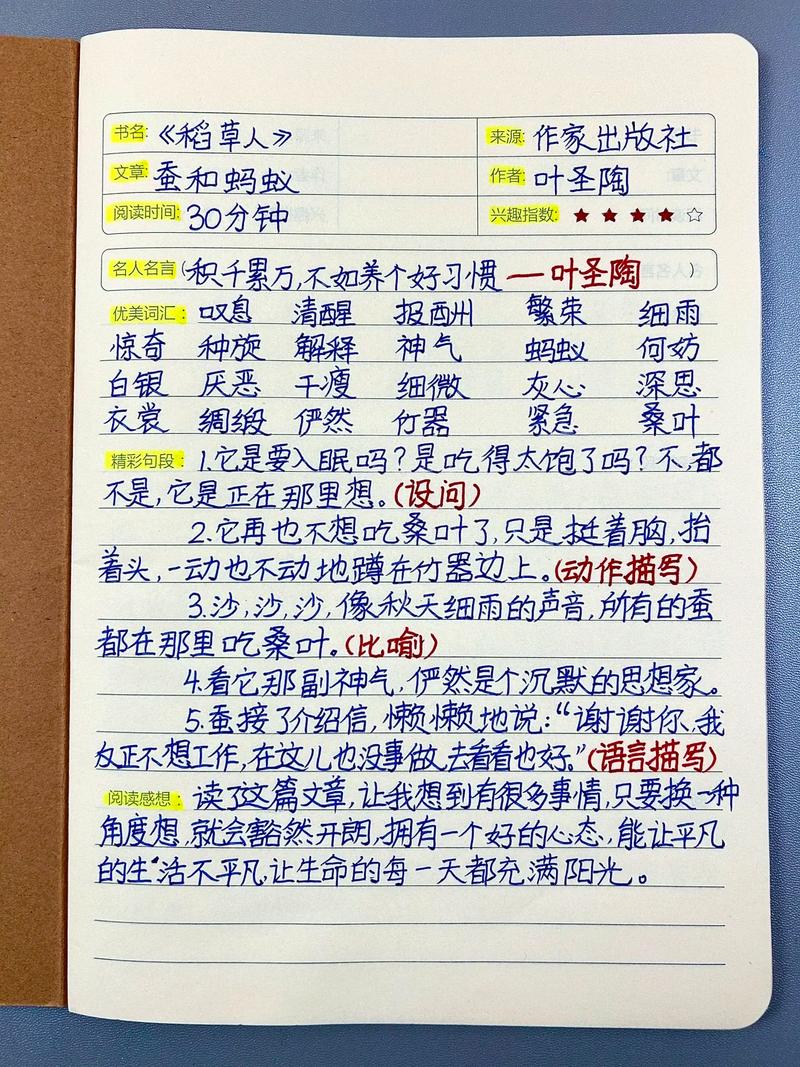 书名:《稻草人》 来源:作家出版社
文章:蚕和蚂蚁 作者:叶圣陶
阅读时间:30分钟 兴趣指数:★★★★☆
名人名言(积千累万,不如养个好习惯——叶圣陶)
优美词汇: 叹息 清醒 报酬 繁荣 细雨
惊奇 种族 解释 神气 蚂蚁 何妨
白银 厌恶 干瘦 细微 灰心 深思
衣裳 绸缎 俨然 竹器 紧急 桑叶
精彩句段: 1.它是要入眠吗?是吃得太饱了吗?不,都
不是,它是正在那里想。(设问)
2.它再也不想吃桑叶了,只是挺着胸,抬
着头,一动也不动地蹲在竹器边上。(动作描写)
3.沙,沙,沙,像秋天细雨的声音,所有的蚕
都在那里吃桑叶。(比喻)
4.看它那副神气,俨然是个沉默的思想家。
5.蚕接了介绍信,懒懒地说:“谢谢你,我
反正不想工作,在这儿也没事做,去看看也好。”(语言描写)
阅读感想: 读了这篇文章,让我想到有很多事情,只要换一种
角度想,就会豁然开朗,拥有一个好的心态,能让平凡
的生活不平凡,让生命的每一天都充满阳光。